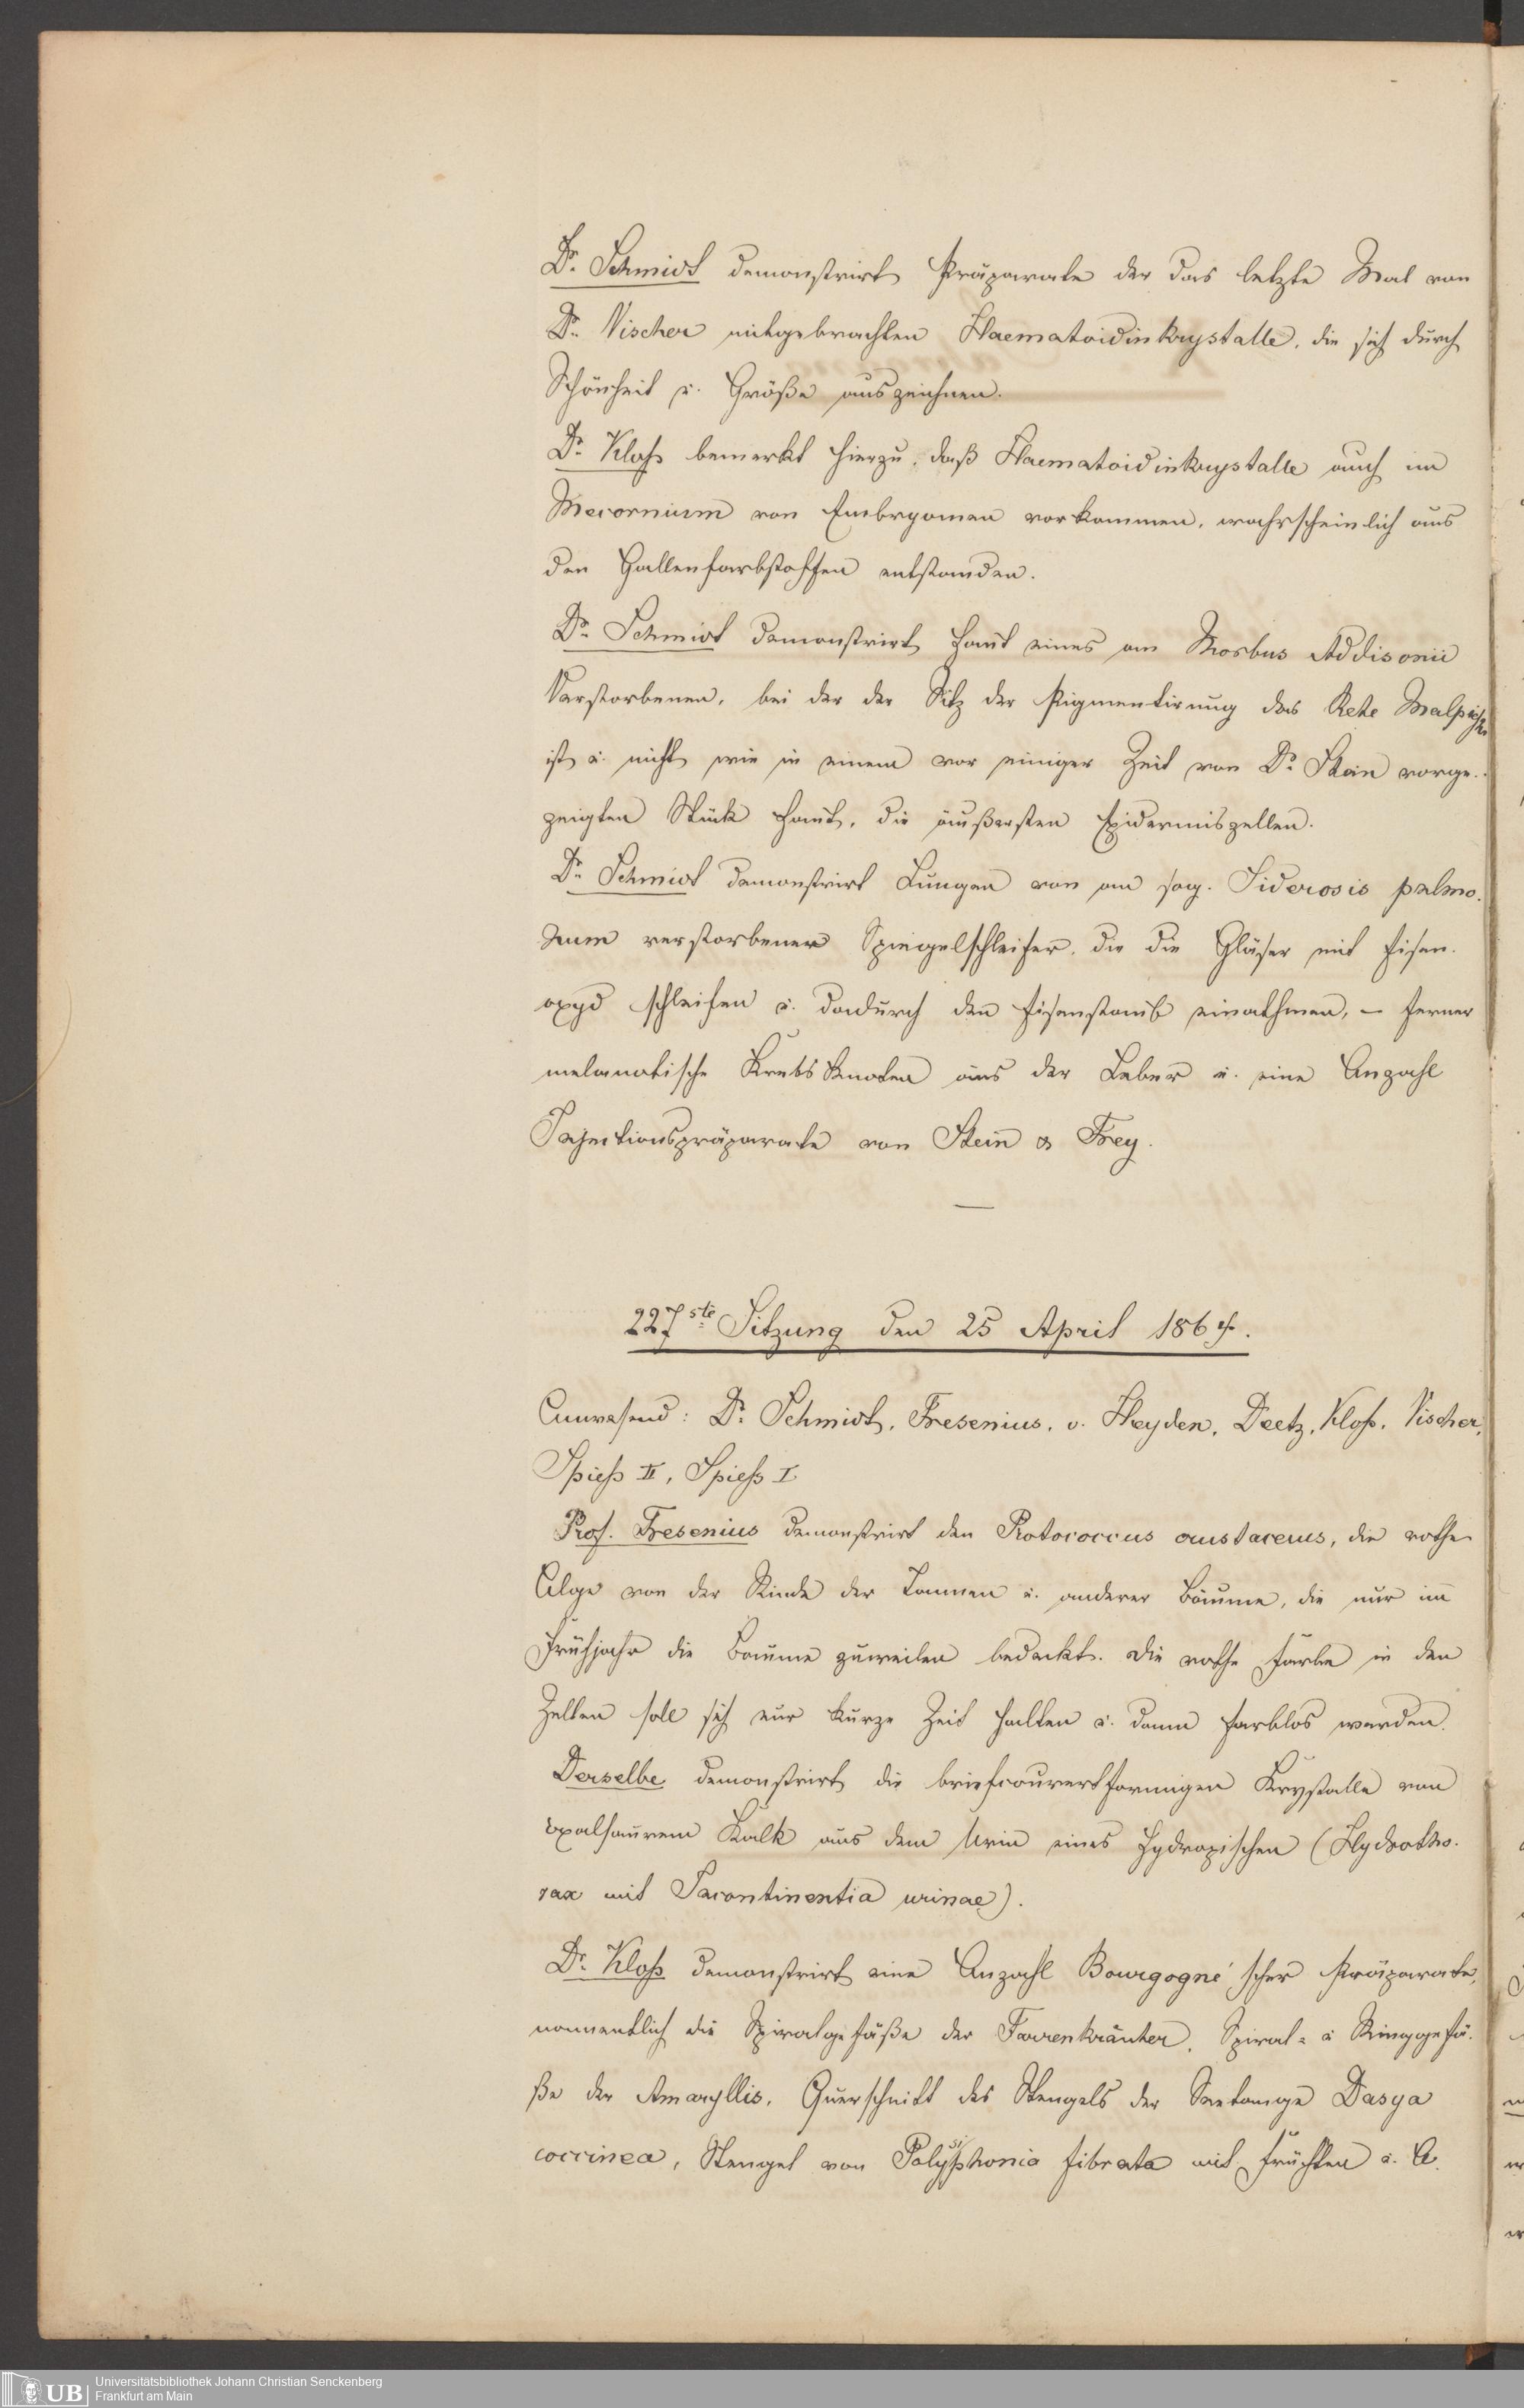 Dr. Schmidt demonstrirt Präparate der das letzte Mal von
Dr. Vischer mitgebrachten Haematoidinkrystalle, die sich durch
Schönheit u. Größe auszeichnen.
Dr. Kloß bemerkt hierzu, daß Haematoidinkrystalle auch im
Meconium von Embryonen vorkommen, wahrscheinlich aus
den Gallenfarbstoffen entstanden.
Dr. Schmidt demonstrirt Haut eines am Morbus Addisonii
Verstorbenen, bei der der Sitz der Pigmentirung das Rete Malpighi
ist u. nicht wie in einem vor einiger Zeit von Dr. Stein vorge-
zeigten Stück Haut, die äußersten Epidermiszellen.
Dr. Schmidt demonstrirt Lungen von an sog. Siderosis pulmo-
num verstorbener Spiegelschleifer, die die Gläser mit Eisen-
oxyd schleifen u. dadurch den Eisenstaub einathmen, – ferner
melanotische Krebsknoten aus der Leber u. eine Anzahl
Injectionspräparate von Stein & Frey.
227ste Sitzung den 25 April 1864.
Anwesend: Dr. Schmidt, Fresenius, v. Heyden, Deetz, Kloß, Vischer,
Spieß II, Spieß I
Prof. Fresenius demonstrirt den Protococcus crustaceus, die rothe
Alge von der Rinde der Tannen u. anderer Bäume, die nur im
Frühjahr die Bäume zuweilen bedeckt. Die rothe Farbe in den
Zellen soll sich nur kurze Zeit halten u. dann farblos werden.
Derselbe demonstrirt die briefcouvertförmigen Krystalle von
oxalsaurem Kalk aus dem Urin eines Hydropischen (Hydrotho-
rax mit Incontinentia urinae).
Dr. Kloß demonstrirt eine Anzahl Bourgogné'scher Präparate,
namentlich die Spiralgefäße der Farrenkräuter, Spiral- u Ringgefä-
ße der Amaryllis, Querschnitt des Stengels der Seetange Dasya
coccinea, Stengel von Polysiphonia fibrata mit Früchten u. A.
UB Universitätsbibliothek Johann Christian Senckenberg
Frankfurt am Main